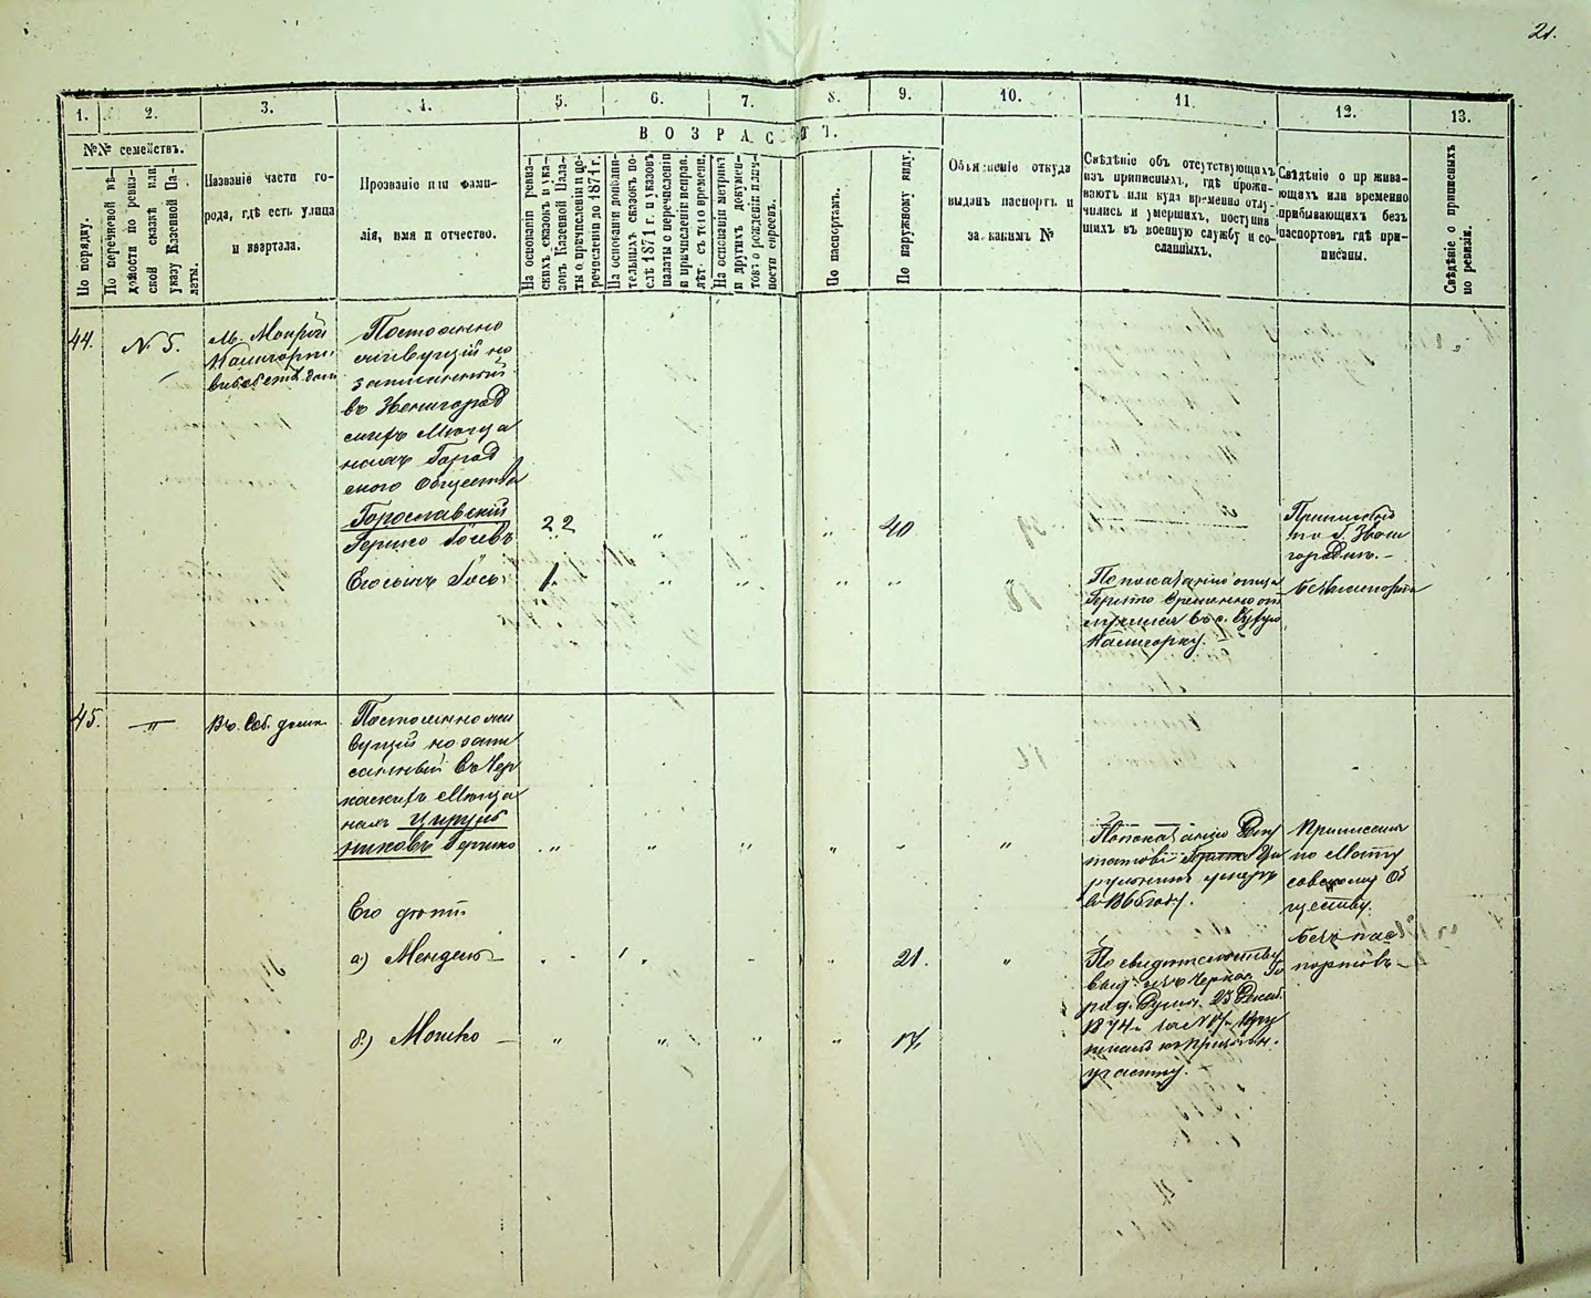 21.
1.
2.
3.
4.
5.
6.
7.
8.
9.
10.
11.
12.
13.
№№ семействъ.
По порядку.
По перечневой вѣ-
домости по ревиз-
ской сказкѣ или
указу Казенной Па-
латы.
Названіе части го-
рода, гдѣ есть улица
и квартала.
Прозваніе или фами-
лія, имя и отчество.
ВОЗРАСТЪ.
На основаніи ревиз-
скихъ сказокъ и ука-
зовъ Казенной Пала-
ты о причисленіи и до-
речисленіи до 1871 г.
На основаніи дополни-
тельныхъ сказокъ по-
слѣ 1871 г. и указовъ
палаты о перечисленіи
и причисленіи исправ.
лѣт. съ того времени.
На основаніи метрикъ
и другихъ докумен-
товъ о рожденіи
ности евреевъ.
По паспортамъ.
По наружному виду.
Объясненіе откуда
выданъ паспортъ и
за какимъ №
Свѣдѣніе объ отсутствующихъ
изъ приписныхъ, гдѣ прожи-
ваютъ или куда временно отлу-
чились и умершихъ, поступив
шихъ въ военную службу и со-
сланныхъ.
Свѣдѣніе о прожива-
ющихъ или временно
прибывающихъ безъ
паспортовъ гдѣ при-
писаны.
Свѣдѣніе о приписныхъ
по ревизіи.
44.
№ 5.
М. Мокрой
Калигорки
Постоянно
живущій но
записанный
въ Звенигород
скихъ Мѣща
нахъ Город
ского Общества
Гершко
22
40
Приписанъ
по г. Звени
городкѣ. —
Его сынъ Іось
1.
По показанію отца
Гершко временно от
лучился въ с.
Калигорку.
безъ паспорта
45.
"
Въ Соб. домѣ
Постоянно жи
вущій но запи
санный въ Чер
каскихъ Мѣща
нахъ Цируль
никовъ Гершко
По показанію Депу
татовъ Гершко Ци
рульникъ умеръ
въ 1865 году.
Приписаны
по
совскому Об
ществу.
Его дѣти
а) Мендель —
1
21.
По свидѣтельству
выд. изъ Черкас. Го
род. Думы 23 Декаб.
1874 за № 17
къ призывн.
участку.
безъ пас
портовъ —
б) Мошко —
17.